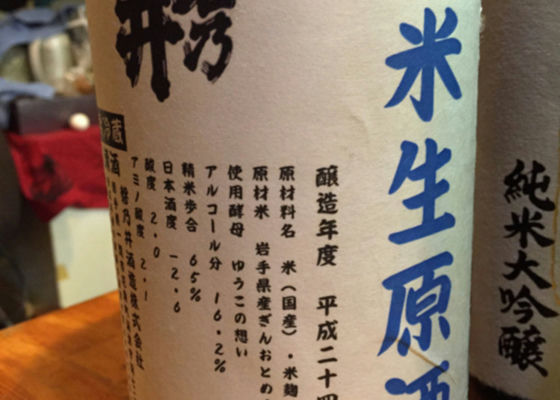 純米大吟醸
米生原酒
乃井
醸造年度 平成二十四
原材料名 米(国産)・米麹
原材米 岩手県産ぎんおとめ
使用酵母 ゆうこの想い
アルコール分 16.2%
精米歩合 65%
日本酒度 -2.6
酸度 2.0
アミノ酸度 2.1
冷蔵
酒 桜乃井酒造株式会社